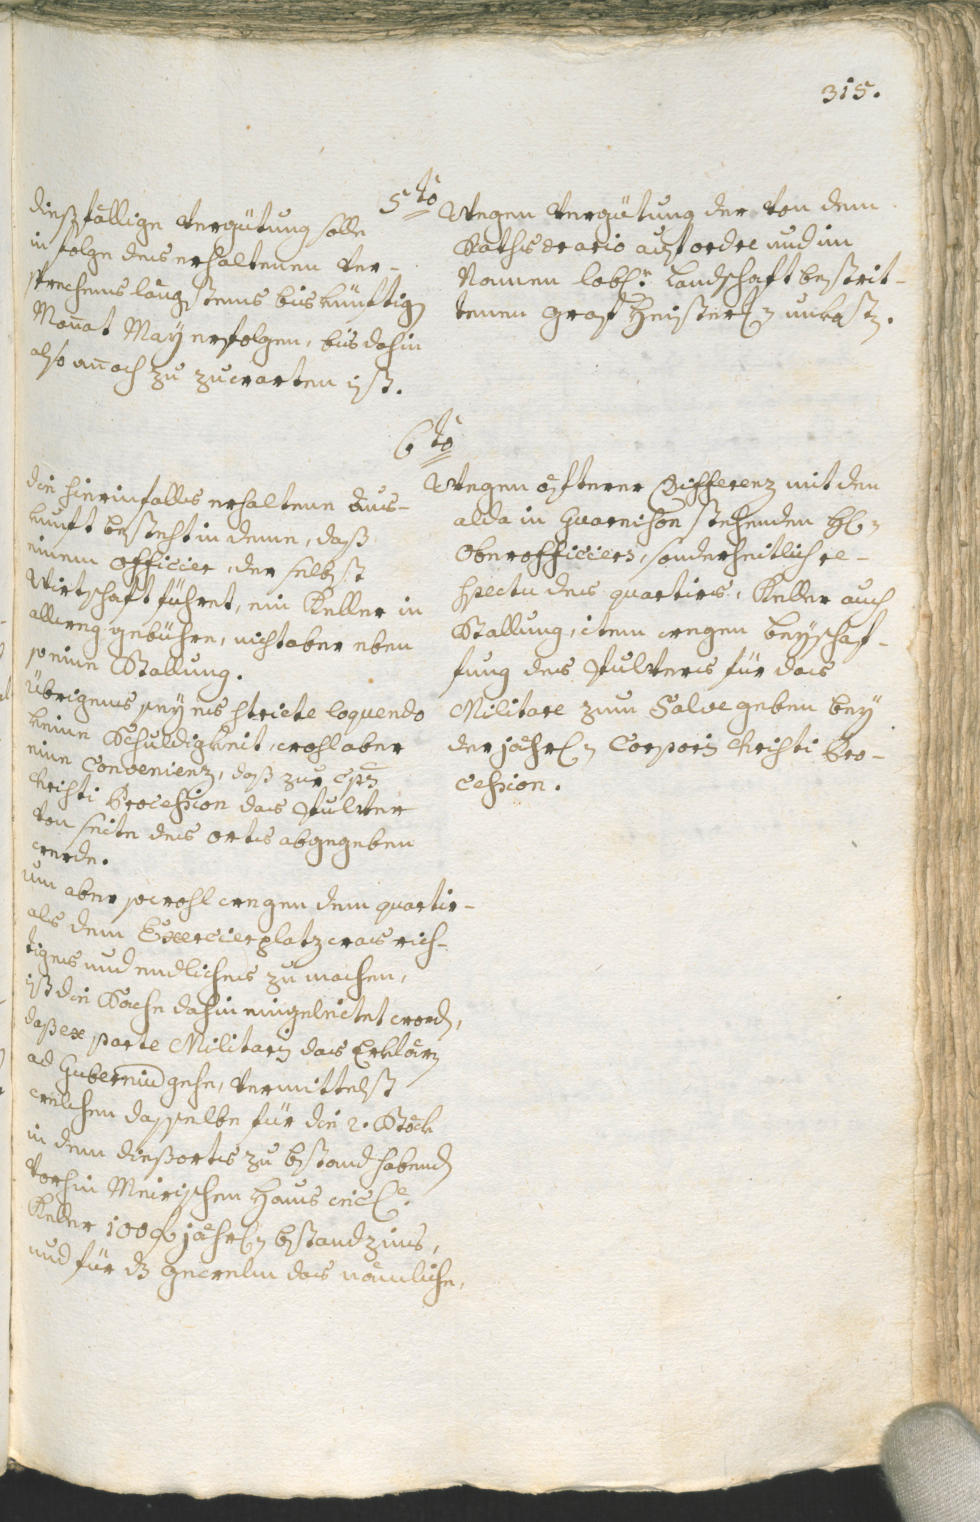 315.
5to
Wegen Vergütung der von dem
Raths ærario auß ordre und im
Namen löbl:r Landschaft bestrit-
tenen Graf Heister
dießfällige Vergütung solle
in folge des erhaltenen Ver-
sprechens längstens bis künftig
Monat May erfolgen, bis dahin
also annoch zu zuwarten ist.
6to
Wegen öfterer Differenz mit den
alda in Guarnison stehenden H
Oberofficiers, sonderheitlich re-
spectu des quartiers, Keller auch
Stallung, item wegen beyschaf-
fung des Pulvers für das
Militare zum Salve geben bey
der jährl Corporis Christi Pro-
cession.
die hierinfalls erhaltene Aus-
kunft besteht in deme, daß
einem Officier, der selbst
Wirtschaft führet, ein Keller in
allweg gebühre, nicht aber eben
so eine Stallung.
übrigens sey es stricte loquendo
keine Schuldigkeit, wohl aber
eine Convenienz, daß zur Cpris
Christi Procession das Pulver
von seite des orts abgegeben
werde.
um aber sowohl wegen dem quartir-
als dem Exercierplatz was rich-
tiges und endliches zu machen,
ist die Sache dahin eingeleitet word,
daß ex parte Militaris das
ad Guberniu gehe, vermittelst
welchen dasselbe für die 2. Stöck
in dem dießorts zu bstand habend
vorhin Meirischen Haus
Keller 100 f jährl bstandzins,
und für dz gewelm das nämliche,